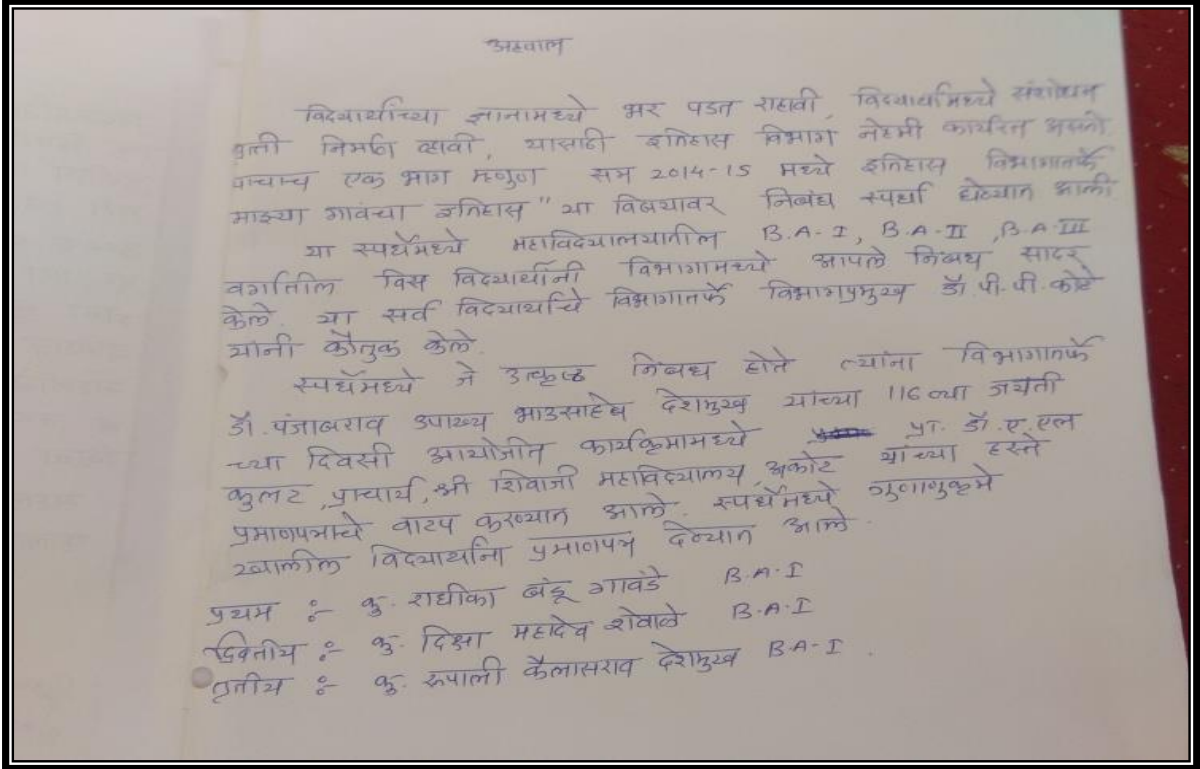 अहवाल
विद्यार्थीच्या ज्ञानामध्ये भर पडत राहावी, विद्यार्थामध्ये संशोधन
वृत्ती निर्माण व्हावी, यासाठी इतिहास विभाग नेहमी कार्यरत असतो.
याचाच एक भाग म्हणुण सत्र 2014-15 मध्ये इतिहास विभागातर्फे
माझ्या गावंचा इतिहास" या विषयावर निबंध स्पर्धा घेण्यात आली
या स्पर्धेमध्ये महाविद्यालयातील B.A-I, B.A-II, B.A-III
वर्गातील विस विद्यार्थांनी विभागामध्ये आपले निबंध सादर
केले. या सर्व विद्यार्थाचे विभागातर्फे विभागप्रमुख डॉ. पी.पी. कोटे
यांनी कौतुक केले.
स्पर्धेमध्ये जे उत्कृष्ठ निबंध होते त्यांना विभागातर्फे
डॉ. पंजाबराव उपाख्य भाउसाहेब देशमुख यांच्या 116 व्या जयंती
च्या दिवसी आयोजीत कार्यक्रमामध्ये प्रा. डॉ. ए. एल
कुलट, प्राचार्य, श्री शिवाजी महाविद्यालय, अकोट यांच्या हस्ते
प्रमाणपत्राचे वाटप करण्यात आले. स्पर्धेमध्ये गुणाणुक्रमे
खालील विद्यार्थाना प्रमाणपत्र देण्यात आले.
प्रथम :- कु. राधीका बंडू गावंडे B.A-I
द्वितीय :- कु. दिक्षा महादेव शेवाळे B.A-I
तृतीय :- कु. रुपाली कैलासराव देशमुख B.A-I.